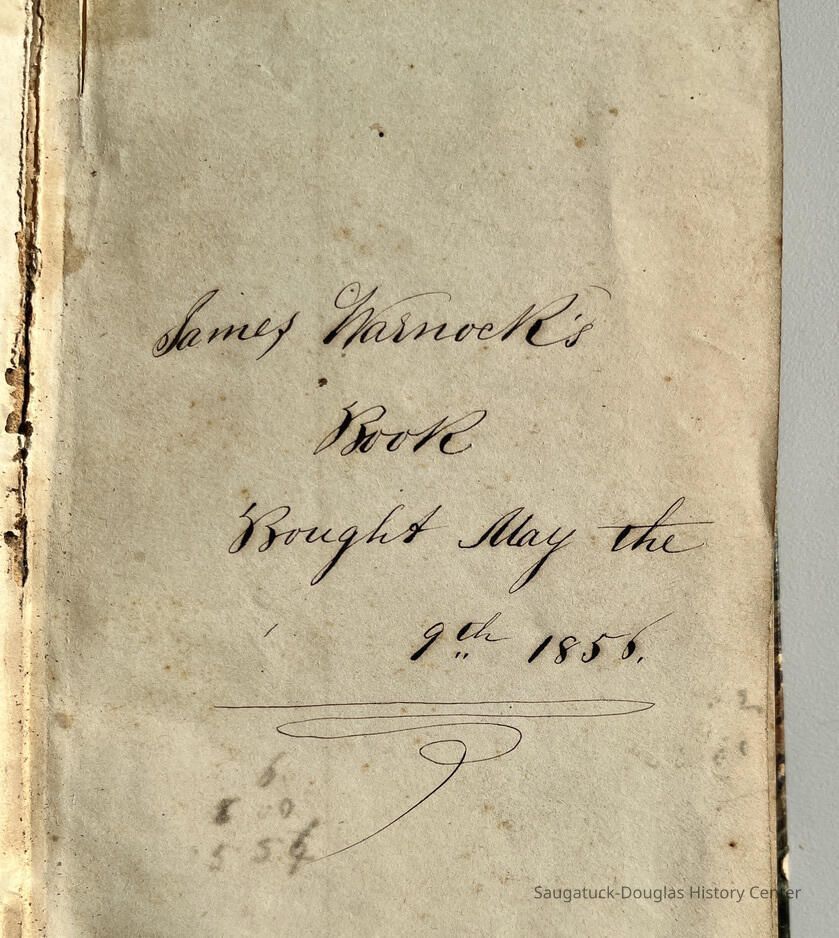 James Warnock's
Book
Bought May the
9th 1856.
6
8 00
5 5
Saugatuck-Douglas History Center